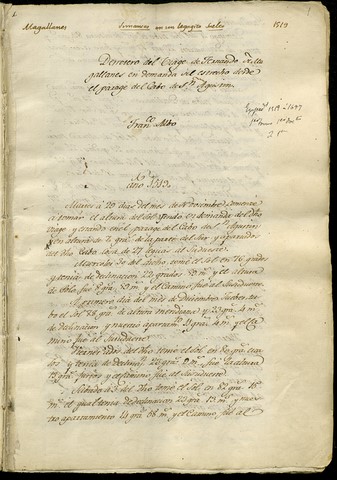 1
Magallanes
Simancas en un legajito suelto
1519
Derrotero del Viage de Fernando Ma
gallanes en demanda del estrecho desde
el parage del Cabo de Sn Agustin
Franco Albo
año 1519
Martes á 29 dias del mes de Noviembre comence
á tomar el altura del sol yendo en demanda del dho
viage y estando en el parage del Cabo de Sn Agustin
y en altura de 7 gs de la parte del Sur y apartado
del dho Cabo cosa de 27 leguas al Sudueste
Miercoles 30 del dicho tome el sol en 76 grados
y tenia de declinacion 22 grados 59 ms y el altura
de polo fue 8 gs 59 ms y el camino fue al Sudsudueste
A primero dia del mes de Diciembre Jueves tu
bo el Sol 78 gs de altura meridiana y 23 gs 4 ms
de declinacion y nuestro apartam. 11 gs 4 ms y el ca
mino fue al Sudsudueste
Viernes 2 dias del dho tomé el Sol en 80 grados
y tenia de declinacion 23 gs ms fue la altura
13 grados y el camino fue al Sudsudueste
Sábado á 3 del dho tome el Sol en 82 gs 15
ms el qual tenia de declinacion 23 gs 13 ms y nues-
tro apartamiento 14 gs 58 ms y el camino fue al